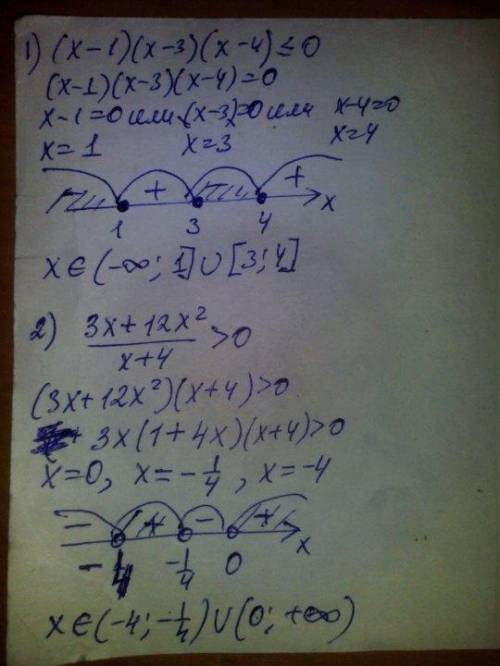 1) (x-1)(x-3)(x-4)≤0
(x-1)(x-3)(x-4)=0
x-1=0 или (x-3)=0 или x-4=0
x=1 x=3 x=4
+ +
1 3 4 x
x∈(-∞; 1]∪[3;4]
2) (3x+12x²)/(x+4)>0
(3x+12x²)(x+4)>0
3x(1+4x)(x+4)>0
x=0, x=-1/4, x=-4
- + - +
-4 -1/4 0 x
x∈(-4;-1/4)∪(0;+∞)